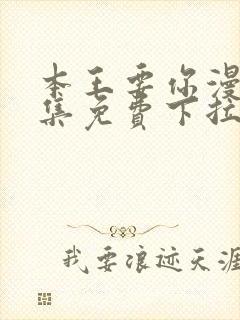 本王要你漫
集免费下拉
我要浪迹天涯